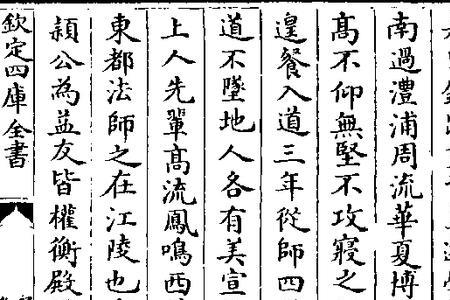 南過澧浦周流華夏博
髙不仰無堅不攻寢之
遑餐入道三年從師四
道不墜地人各有美宣
上人先輩髙流鳳鳴西
東都法師之在江陵也
頴公為益友皆權衡殿
欽定四庫全書